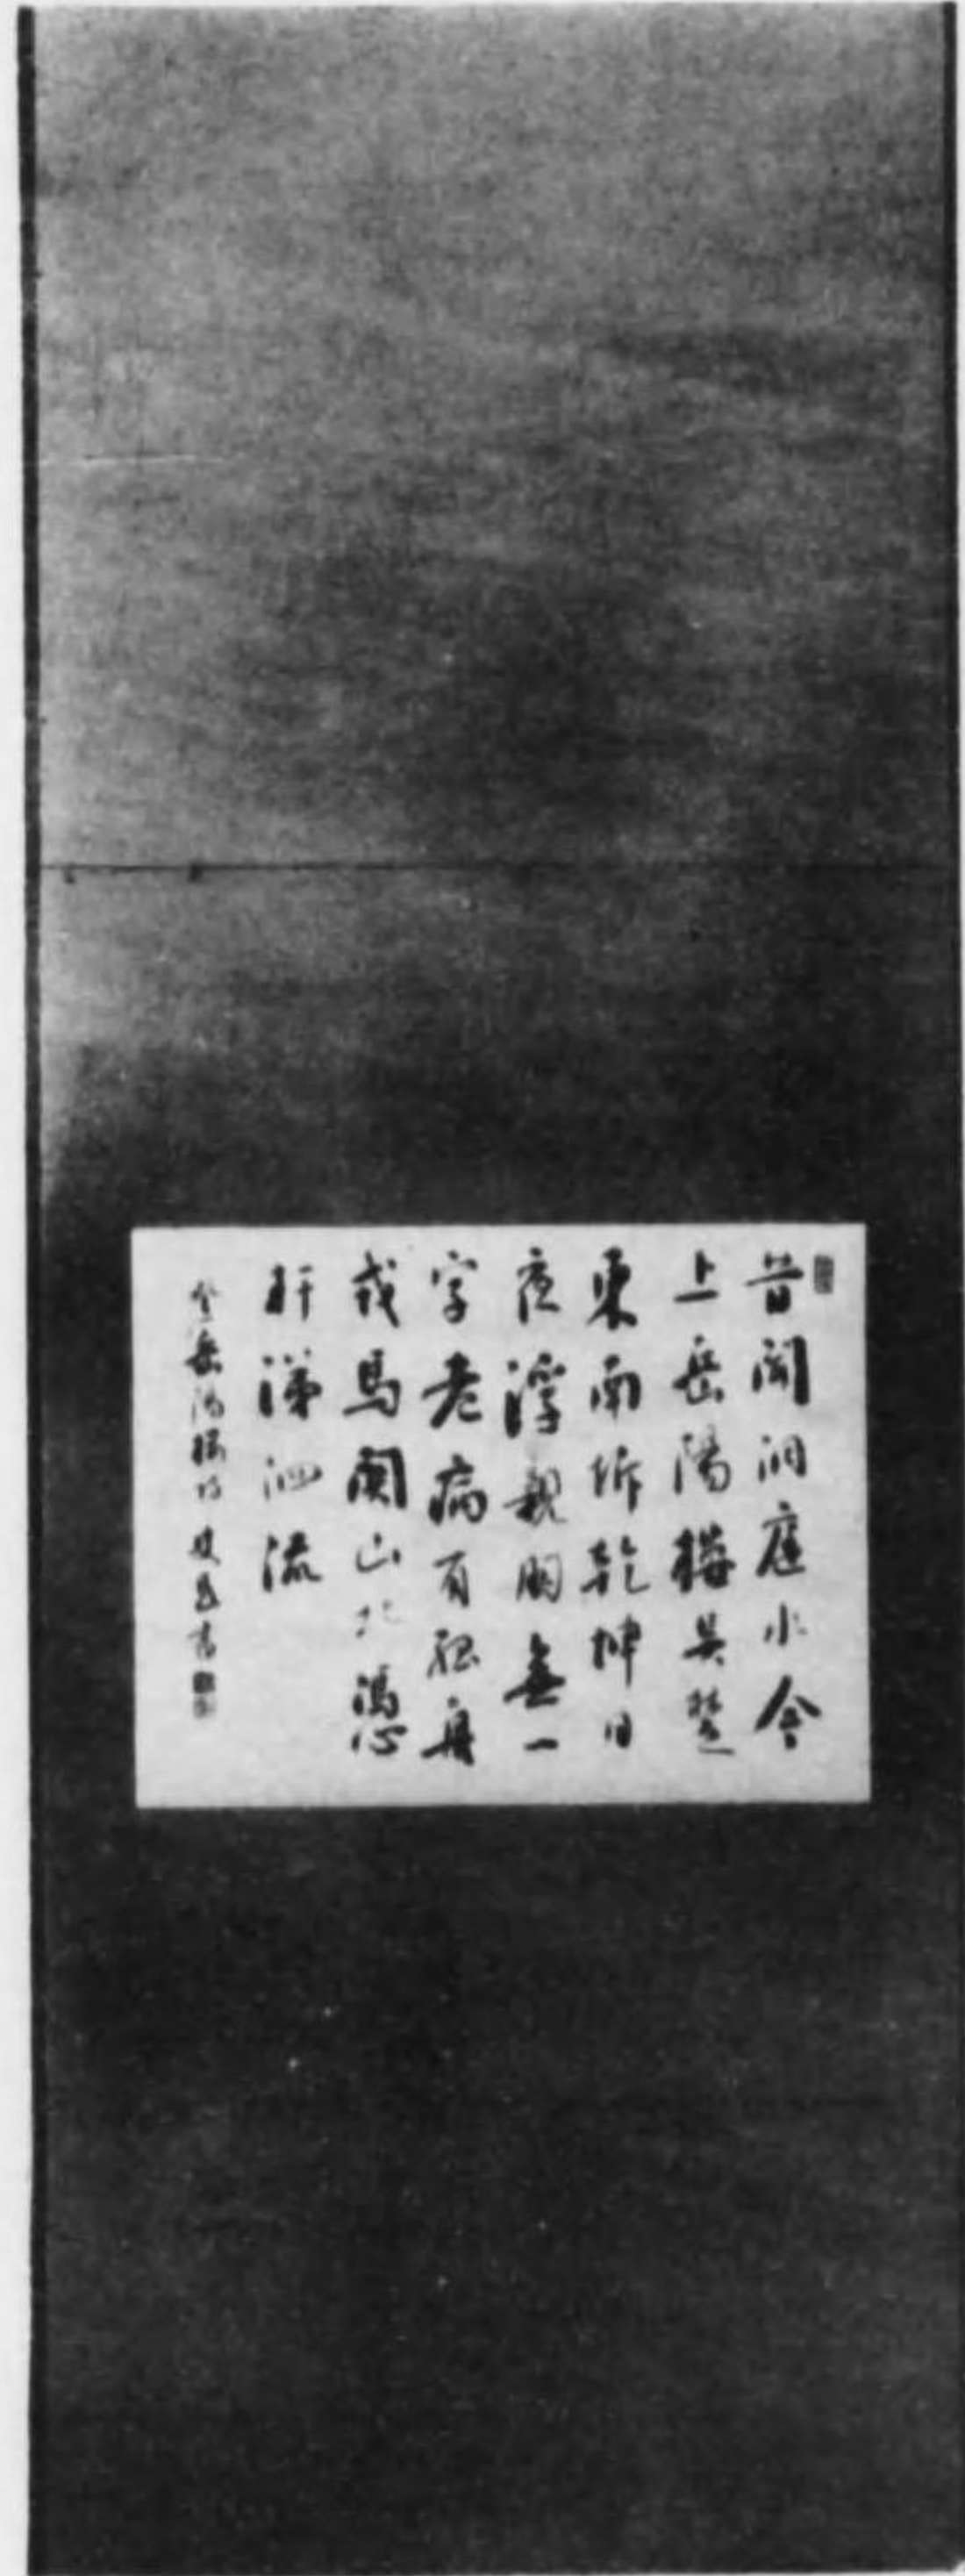 昔聞洞庭水今
上岳陽樓吳楚
東南坼乾坤日
夜浮親朋無一
字老病有孤舟
戎馬關山北憑
軒涕泗流
登岳陽樓詩 書